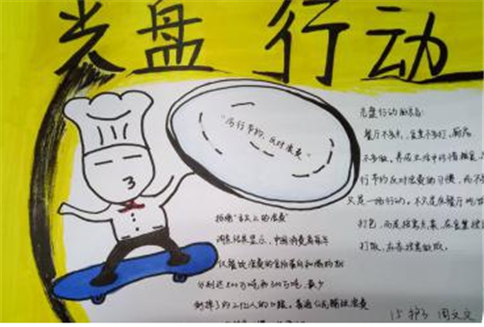 光盘 行动
"厉行节约,反对浪费"
光盘行动的宗旨:
餐厅不多点,食堂不多打,厨房
不多做,养成生活中珍惜粮食、
行节约反对浪费的习惯,而不
只是一场行动,不只是在餐厅吃
打包,而是按需点菜,在食堂按
打饭,在家按需做饭。
拒绝"舌尖上的浪费"
调查结果显示,中国消费者每年
仅餐饮浪费的食物蛋白和脂肪
分别达800万吨和300万吨,最少
倒掉了约2亿人的口粮。
15护3